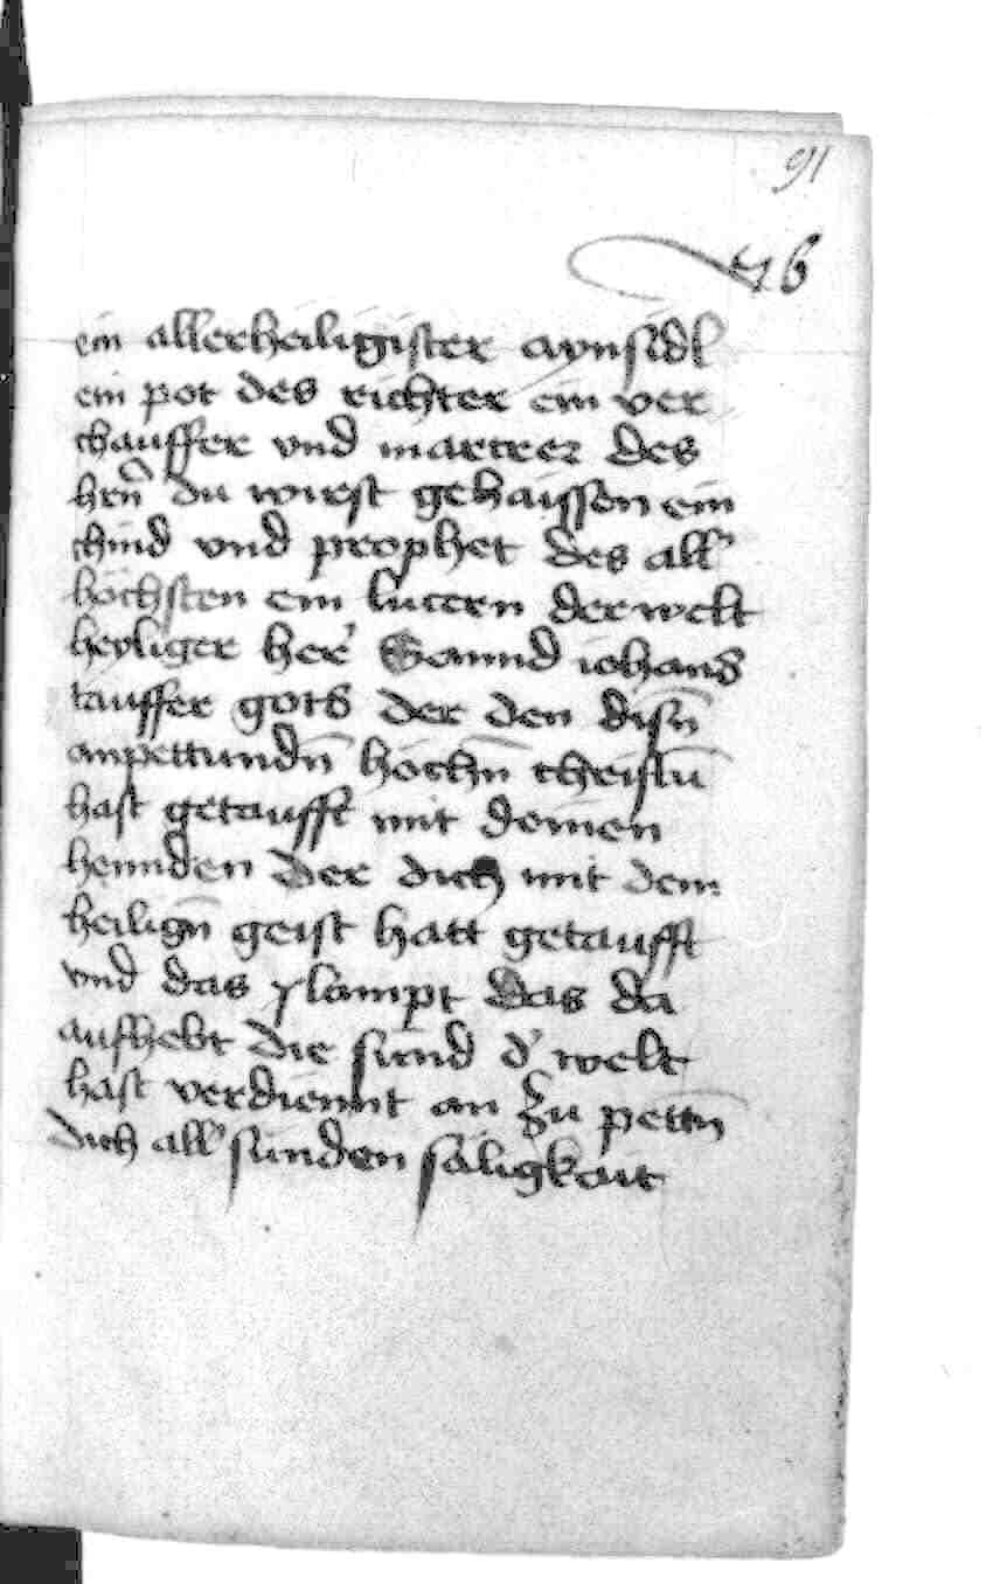 91
76
ein allerheiligister aynsidl
ein pot des richter ein ver
chauffer vnd martrer des
hrn̄ du wirst gehaissen ein
chind vnd prophet des all'
höchsten ein lucern der welt
heyliger her' Sannd iohans
tauffer gots der den disn̄
anpettundn̄ höchn̄ christū
hast getaufft mit deinen
hennden der dich mit dem
heilign̄ geist hatt getaufft
vnd das lampt das da
aufhebt die sünd d' welt
hast verdiennt an zu pettn̄
dich all' sünden säligkait